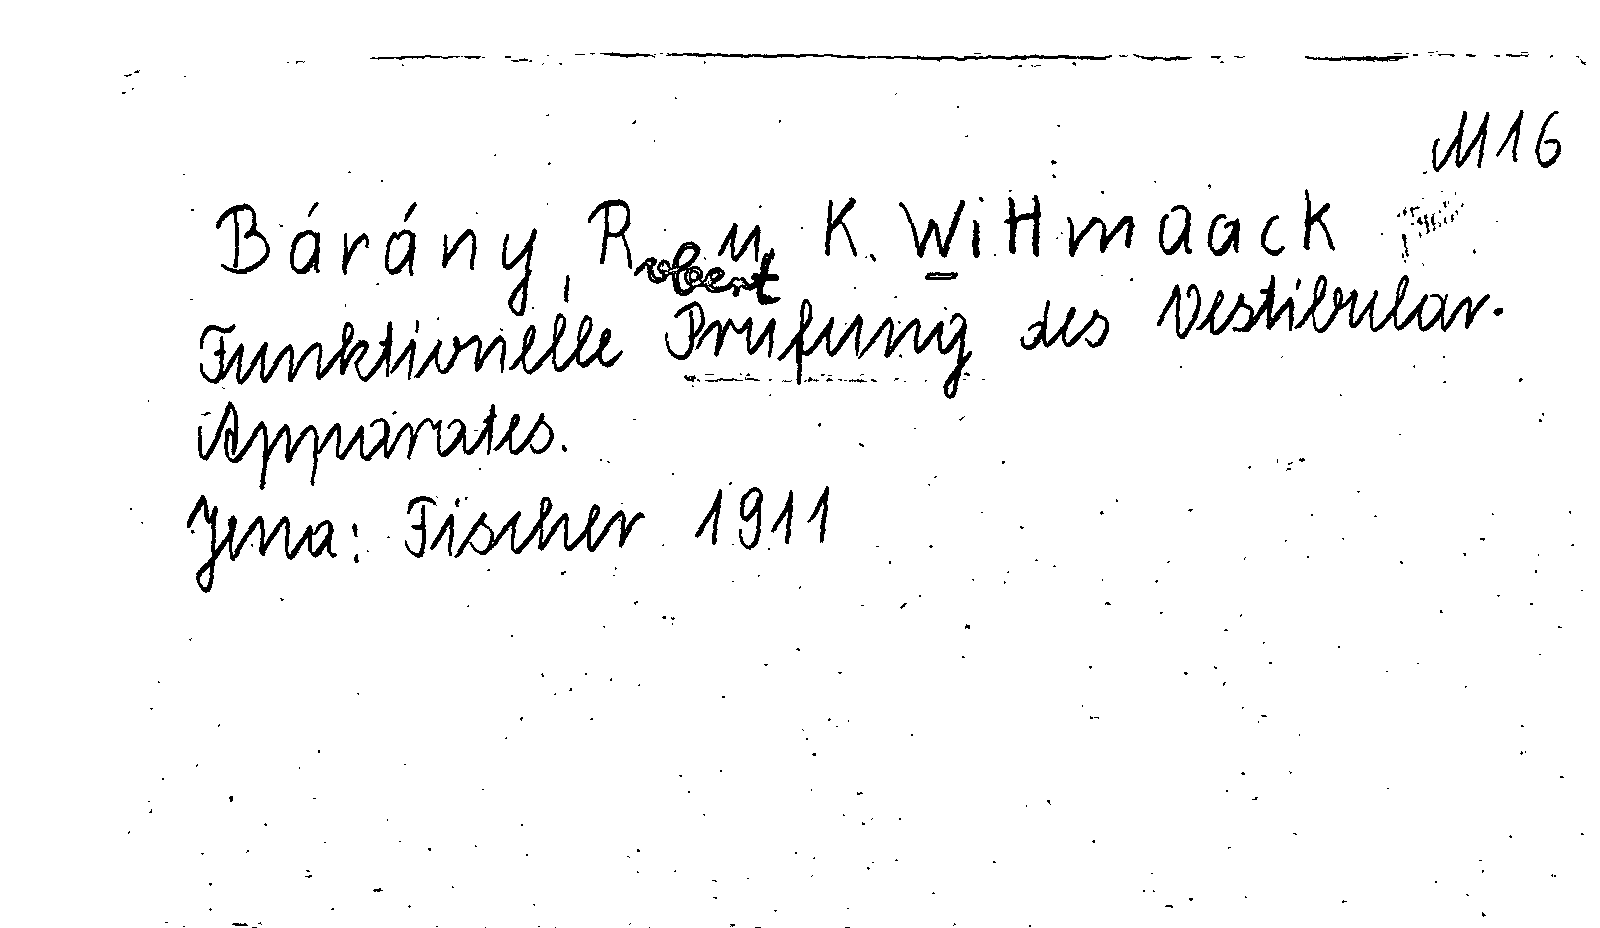 M16
Bárány, Robert u. K. Wittmaack
Funktionelle Prüfung des Vestibular-
Apparates.
Jena: Fischer 1911